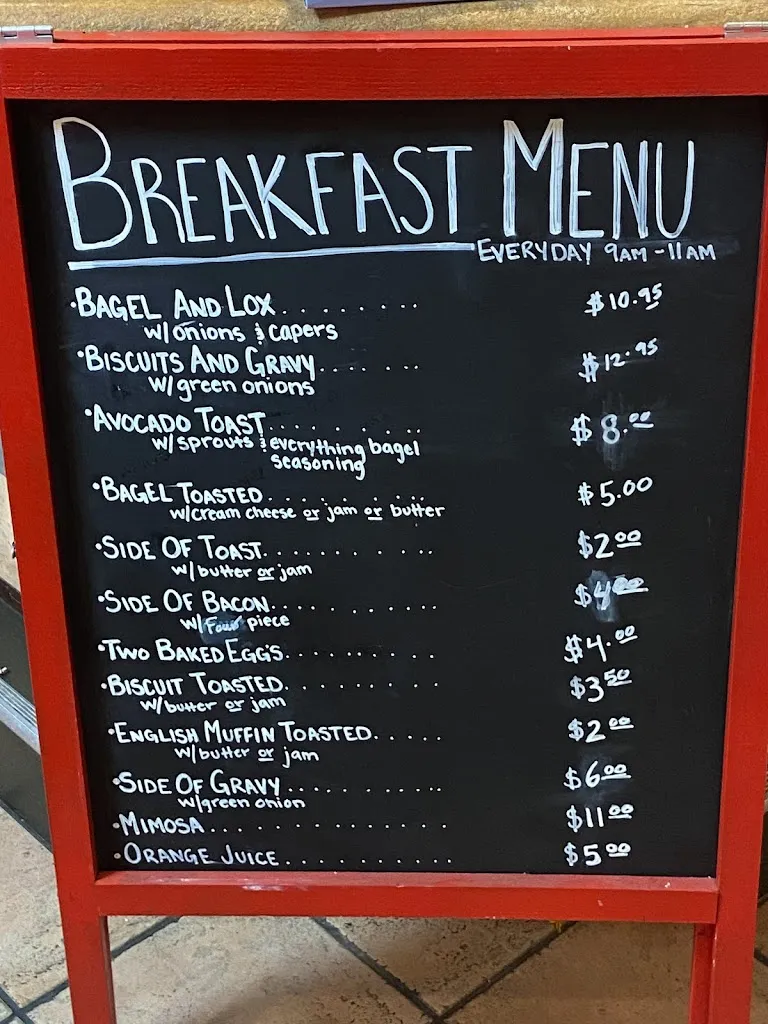 BREAKFAST MENU
EVERYDAY 9AM-11AM
•BAGEL AND LOX........ $10.95
w/onions & capers
•BISCUITS AND GRAVY...... $12.95
w/green onions
•AVOCADO TOAST........ $8.00
w/sprouts & everything bagel
seasoning
•BAGEL TOASTED........ $5.00
w/cream cheese or jam or butter
•SIDE OF TOAST.......... $2.00
w/butter or jam
•SIDE OF BACON.......... $4.00
w/Four piece
•TWO BAKED EGG'S......... $4.00
•BISCUIT TOASTED......... $3.50
w/butter or jam
•ENGLISH MUFFIN TOASTED..... $2.00
w/butter or jam
•SIDE OF GRAVY.......... $6.00
w/green onion
•MIMOSA............. $11.00
•ORANGE JUICE.......... $5.00